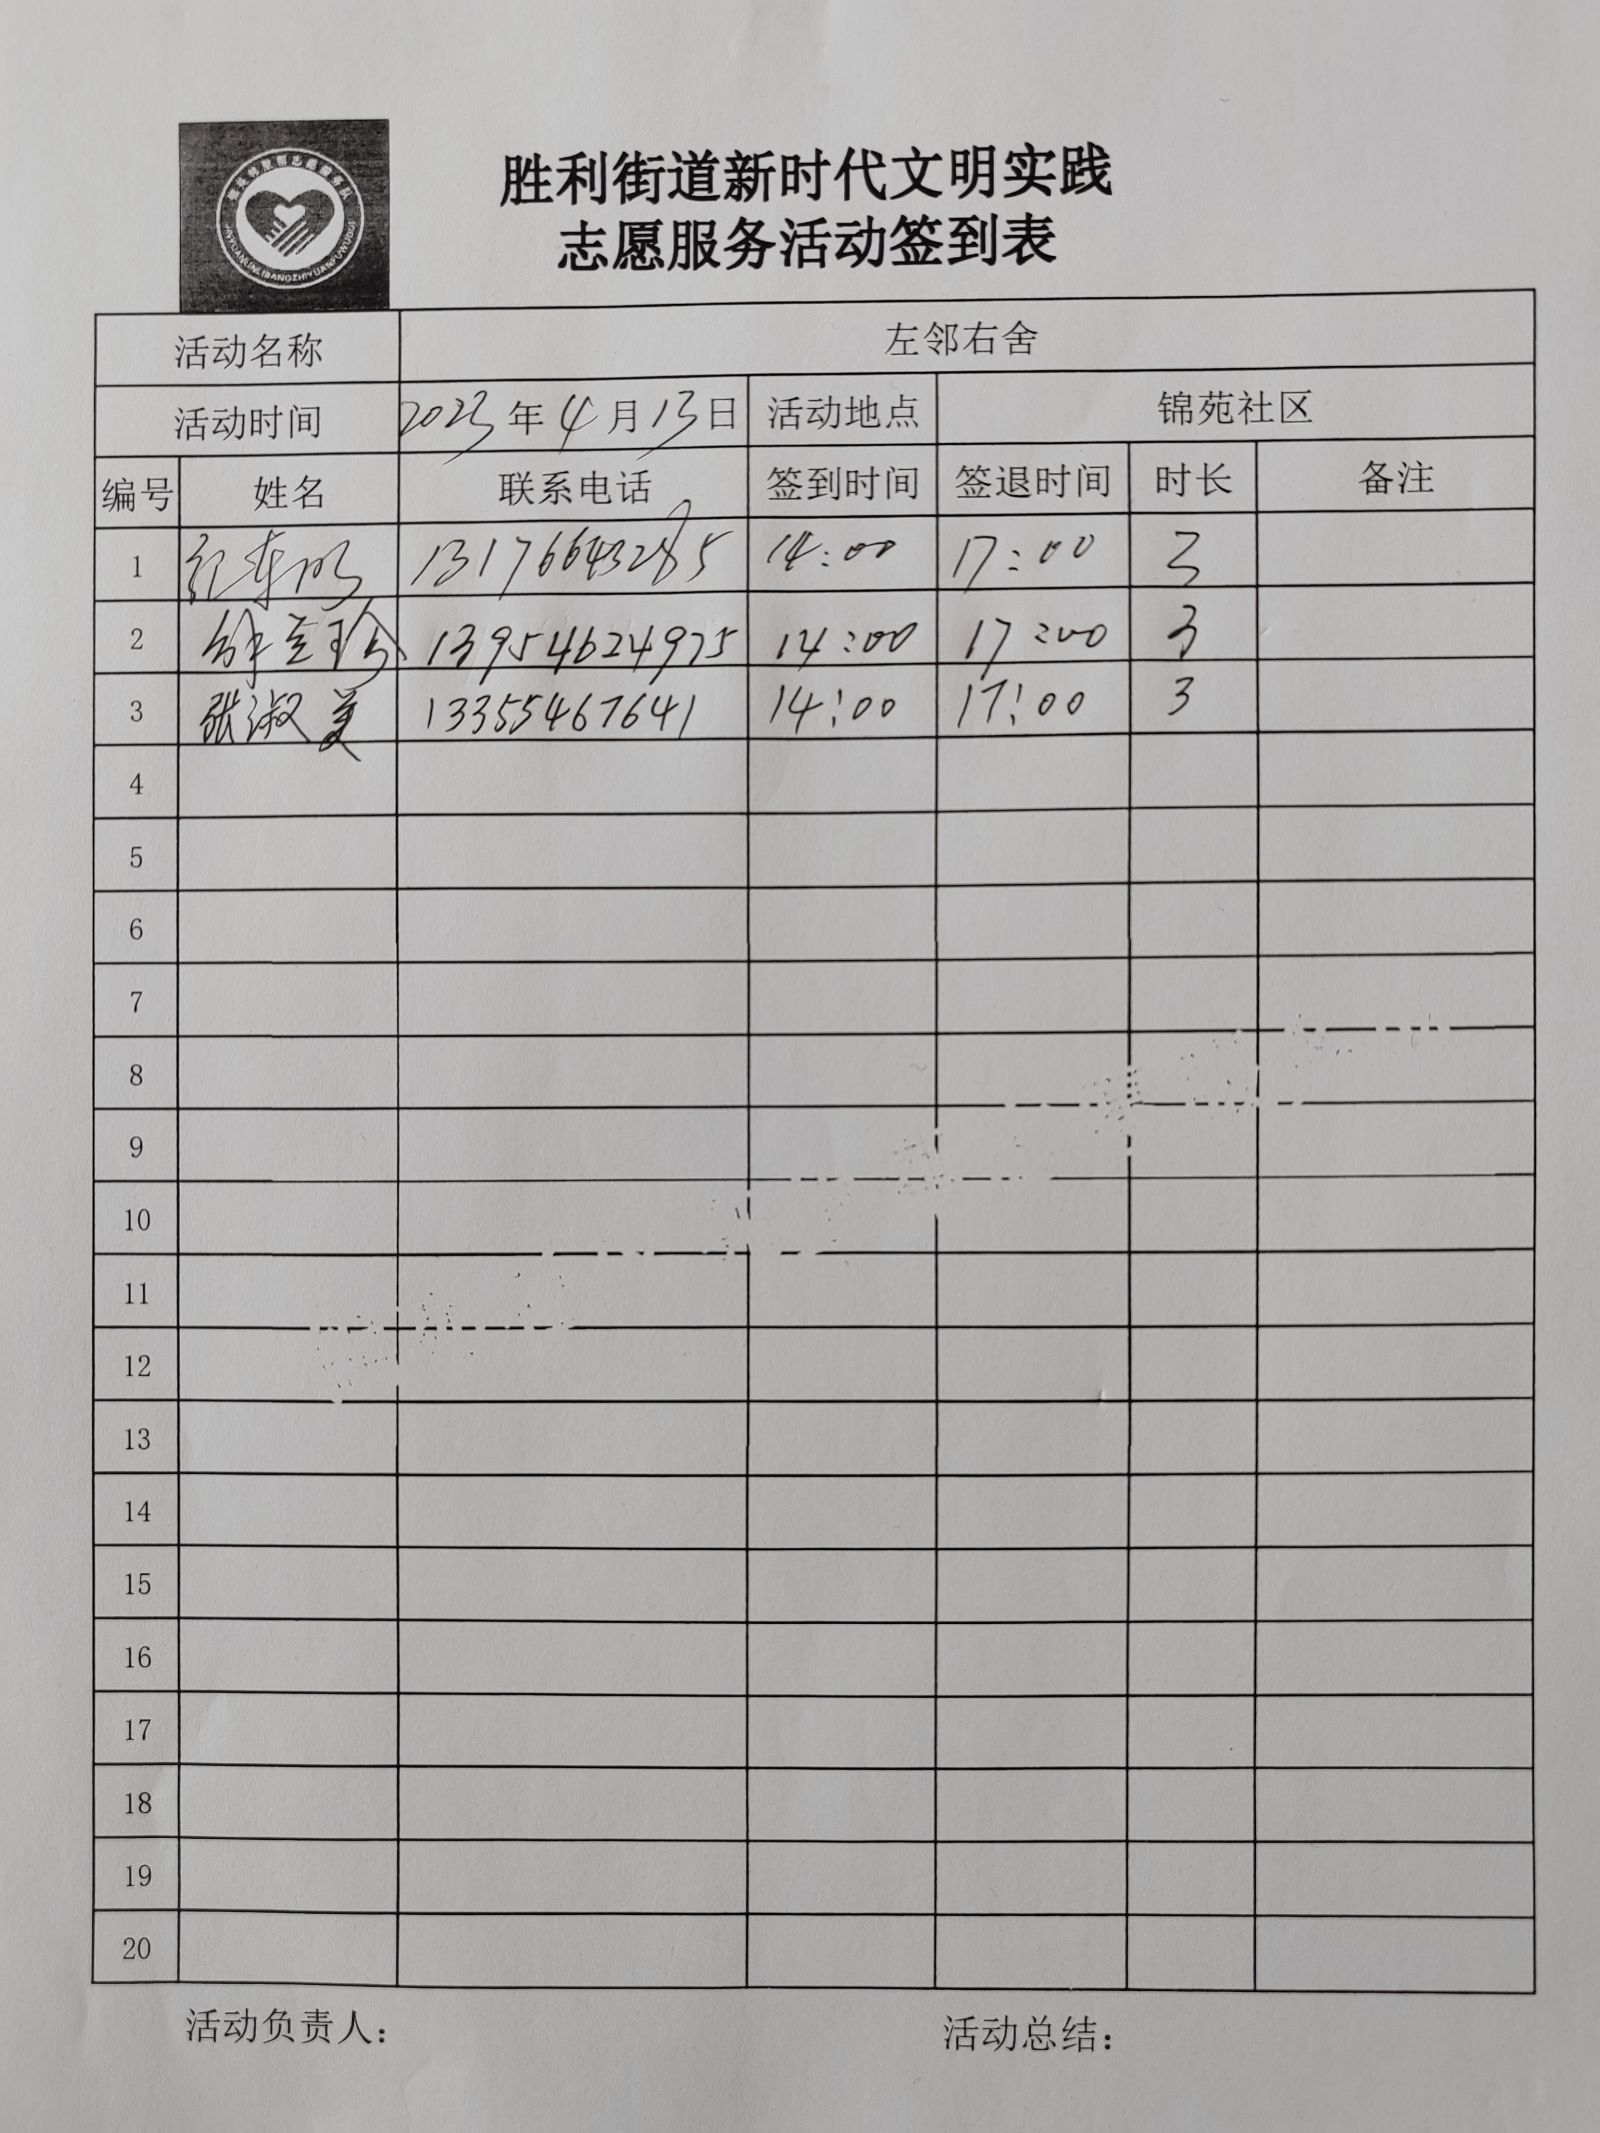 胜利街道新时代文明实践
志愿服务活动签到表
活动名称 左邻右舍
活动时间 2023年4月13日 活动地点 锦苑社区
编号 姓名 联系电话 签到时间 签退时间 时长 备注
1 13176643285 14:00 17:00 3
2 13954624975 14:00 17:00 3
3 张淑美 13355467641 14:00 17:00 3
4
5
6
7
8
9
10
11
12
13
14
15
16
17
18
19
20
活动负责人: 活动总结: